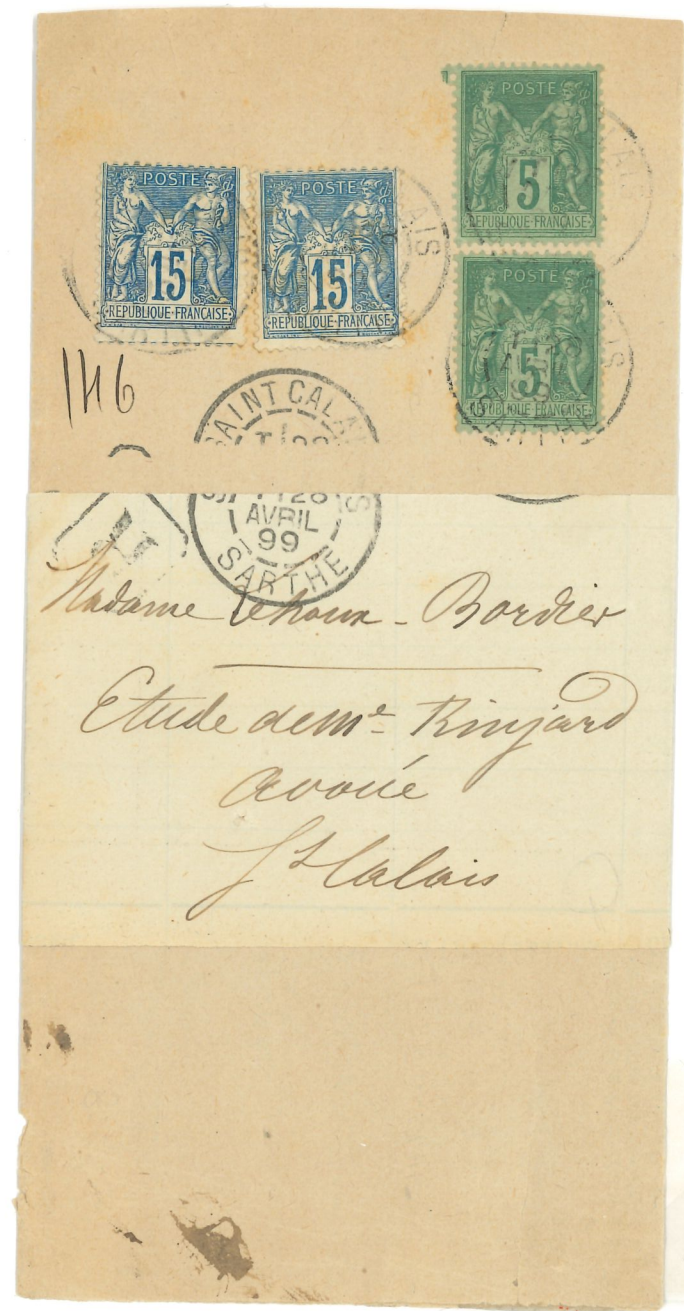 POSTE
5
REPUBLIQUE·FRANÇAISE
POSTE
15
REPUBLIQUE·FRANÇAISE
POSTE
15
REPUBLIQUE·FRANÇAISE
POSTE
5
REPUBLIQUE·FRANÇAISE
146
SAINT CALAIS
26
AVRIL
99
SARTHE
R
Madame Lehoux - Bordier
Etude de Me Rinjard
avoué
St Calais